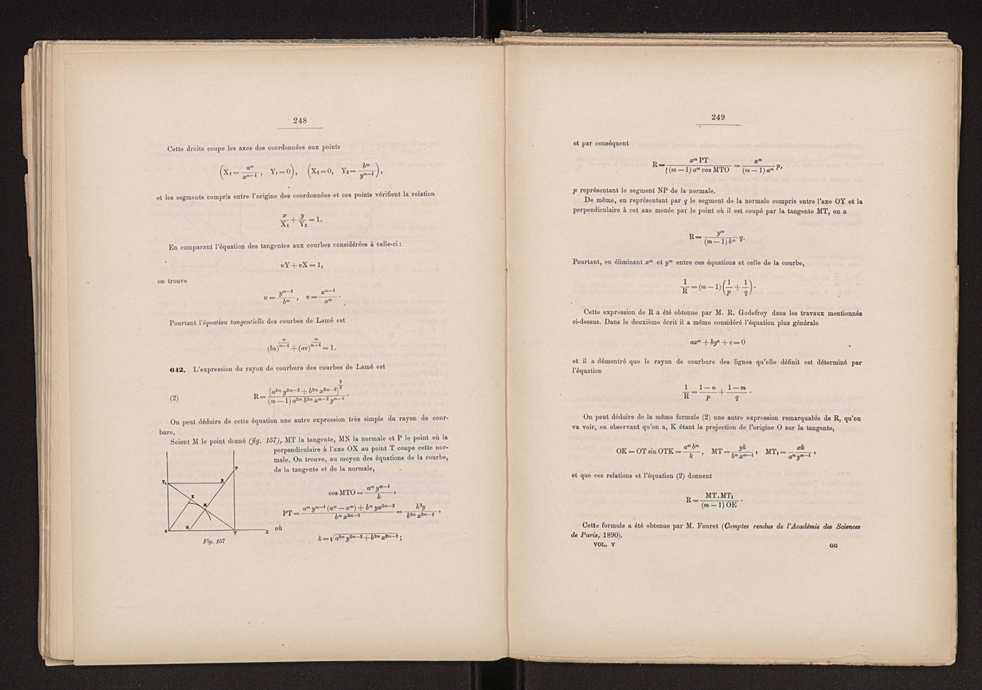 248
Cette droite coupe les axes des coordonnées aux points
(X₁ = aᵐ/xᵐ⁻¹, Y₁ = 0), (X₂ = 0, Y₂ = bᵐ/yᵐ⁻¹),
et les segments compris entre l'origine des coordonnées et ces points vérifient la relation
x/X₁ + y/Y₂ = 1.
En comparant l'équation des tangentes aux courbes considérées à celle-ci:
uY + vX = 1,
on trouve
u = yᵐ⁻¹/bᵐ, v = xᵐ⁻¹/aᵐ.
Pourtant l'équation tangentielle des courbes de Lamé est
(bu)^(m/(m−1)) + (av)^(m/(m−1)) = 1.
642. L'expression du rayon de courbure des courbes de Lamé est
(2) R = [a²ᵐ y²ᵐ⁻² + b²ᵐ x²ᵐ⁻²]^(3/2) / ((m − 1) a²ᵐ b²ᵐ xᵐ⁻² yᵐ⁻²).
On peut déduire de cette équation une autre expression très simple du rayon de cour-
bure.
Soient M le point donné (fig. 157), MT la tangente, MN la normale et P le point où la
perpendiculaire à l'axe OX au point T coupe cette nor-
male. On trouve, au moyen des équations de la courbe,
de la tangente et de la normale,
cos MTO = aᵐ yᵐ⁻¹/k,
PT = (aᵐ yᵐ⁻¹ (aᵐ − xᵐ) + bᵐ yx²ᵐ⁻²)/(bᵐ x²ᵐ⁻¹) = k² y/(b²ᵐ x²ᵐ⁻²),
où
k = √(a²ᵐ y²ᵐ⁻² + b²ᵐ x²ᵐ⁻²);
Fig. 157
249
et par conséquent
R = xᵐ PT/((m − 1) aᵐ cos MTO) = xᵐ/((m − 1) aᵐ) p,
p représentant le segment NP de la normale.
De même, en représentant par q le segment de la normale compris entre l'axe OY et la
perpendiculaire à cet axe menée par le point où il est coupé par la tangente MT, on a
R = yᵐ/((m − 1) bᵐ) q.
Pourtant, en éliminant xᵐ et yᵐ entre ces équations et celle de la courbe,
1/R = (m − 1)(1/p + 1/q).
Cette expression de R a été obtenue par M. R. Godefroy dans les travaux mentionnés
ci-dessus. Dans le deuxième écrit il a même considéré l'équation plus générale
axᵐ + byⁿ + c = 0
et il a démontré que le rayon de courbure des lignes qu'elle définit est déterminé par
l'équation
1/R = (1 − n)/p + (1 − m)/q.
On peut déduire de la même formule (2) une autre expression remarquable de R, qu'on
va voir, en observant qu'on a, K étant la projection de l'origine O sur la tangente,
OK = OT sin OTK = aᵐ bᵐ/k, MT = yk/(bᵐ xᵐ⁻¹), MT₁ = xk/(aᵐ yᵐ⁻¹),
et que ces relations et l'équation (2) donnent
R = MT.MT₁/((m − 1) OK).
Cette formule a été obtenue par M. Fouret (Comptes rendus de l'Académie des Sciences
de Paris, 1890).
VOL. V GG